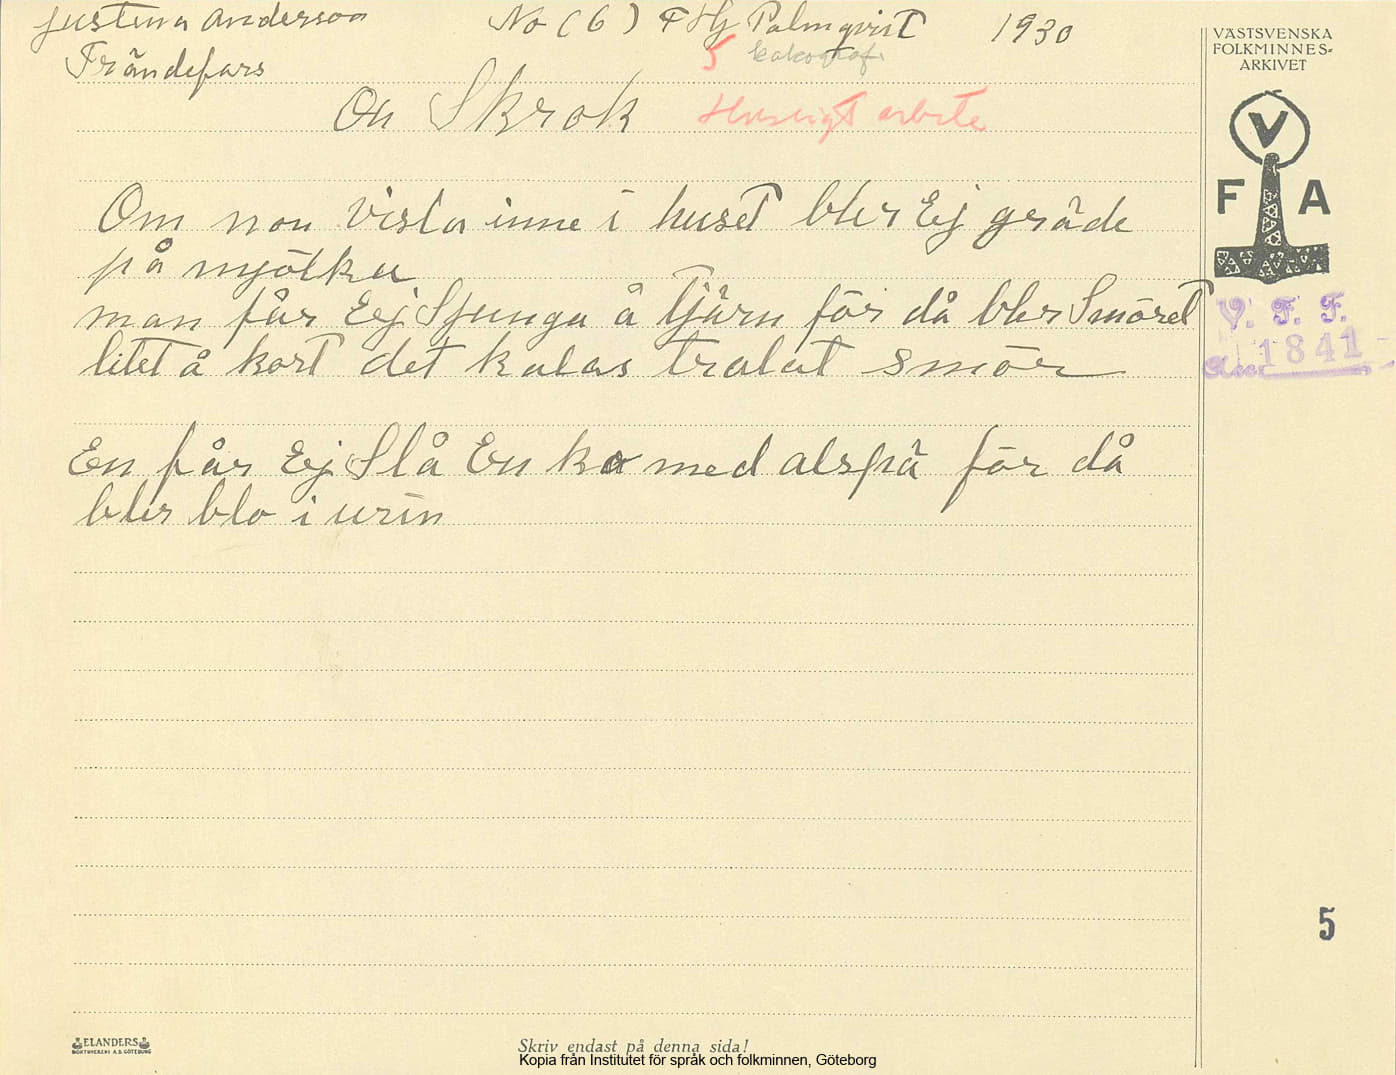 Justina Anderson No (6) F Hj Palmqvist 1930
Frändefors 5
Om Skrok Husligt arbete
Om non visla inne i huset bler Ej gräde
på mjölka
man får Eej Sjunga å tjärn för då bler Smöret
litet å kort det kalas tralat smör
En får Ej Slå En ko med alspå för då
bler blo i urin
VÄSTSVENSKA
FOLKMINNES-
ARKIVET
V
F A
V. F. F.
Acc. 1841
5
ELANDERS
BOKTRYCKERI A.B. GÖTEBORG
Skriv endast på denna sida!
Kopia från Institutet för språk och folkminnen, Göteborg